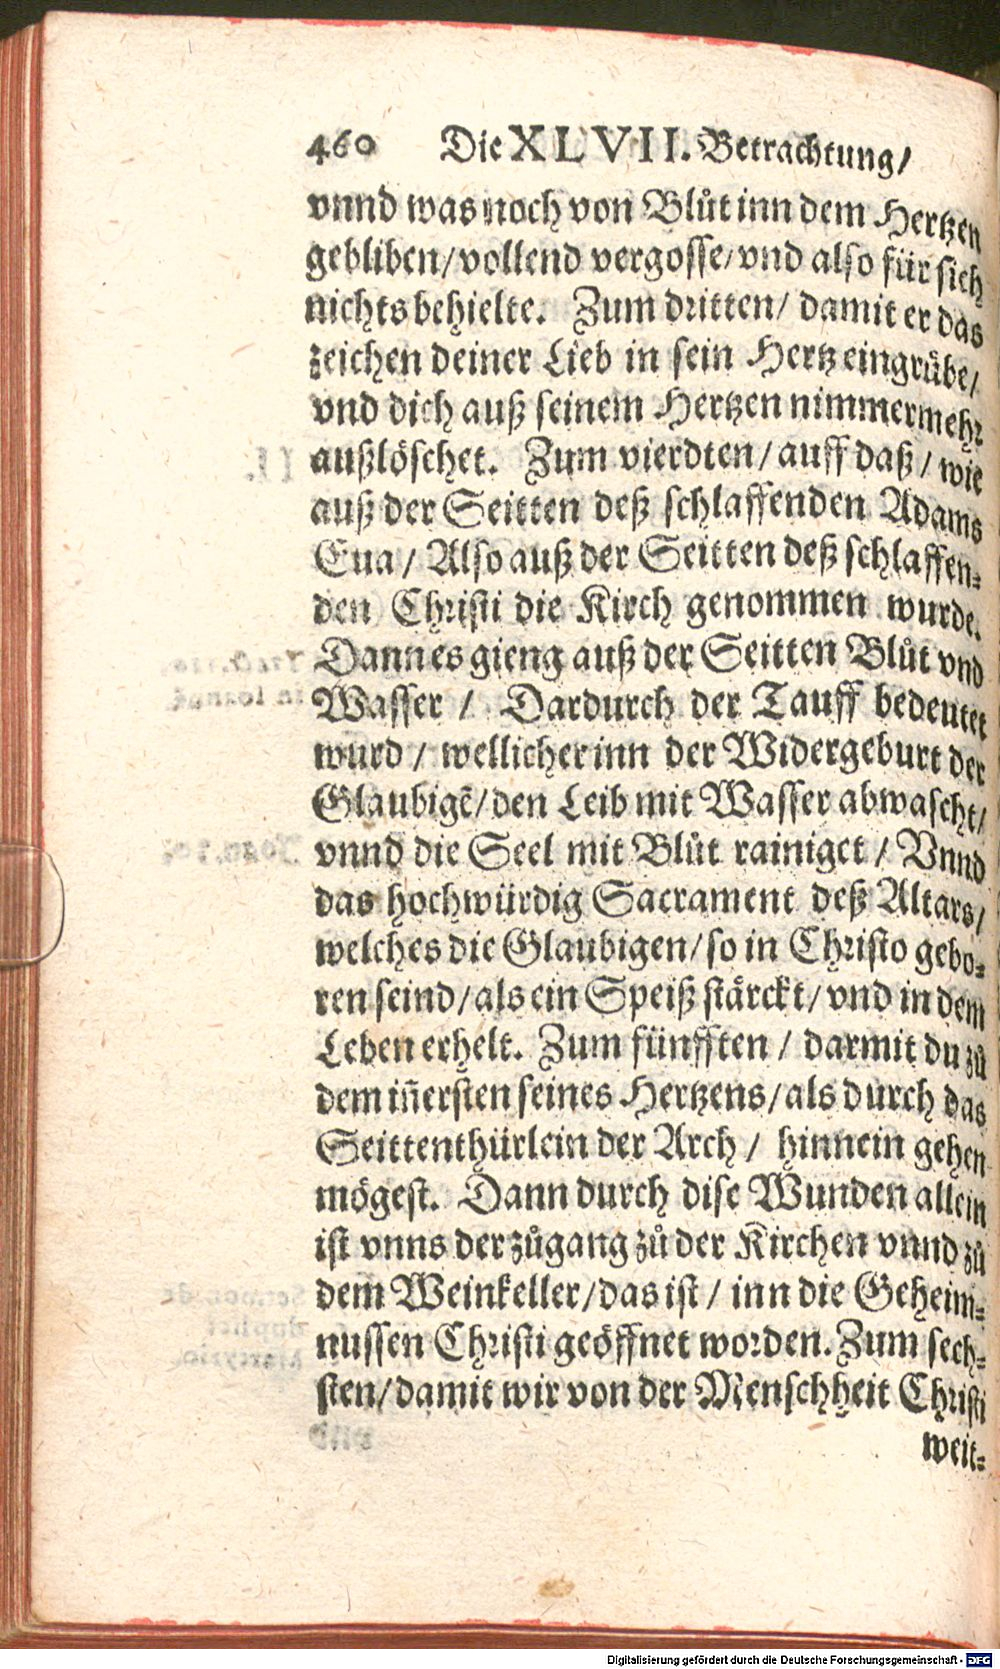 460 Die XLVII. Betrachtung/
vnnd was noch von Blůt inn dem Hertzen
gebliben/vollend vergosse/vnd also für sich
nichts behielte. Zum dritten/ damit er das
zeichen deiner Lieb in sein Hertz eingrůbe/
vnd dich auß seinem Hertzen nimmermehr
außlöschet. Zum vierdten/ auff daß/ wie
auß der Seitten deß schlaffenden Adams
Eua/ Also auß der Seitten deß schlaffen⸗
den Christi die Kirch genommen wurde.
Dann es gieng auß der Seitten Blůt vnd
Wasser / Dardurch der Tauff bedeutet
wurd / wellicher inn der Widergeburt der
Glaubigẽ/den Leib mit Wasser abwascht/
vnnd die Seel mit Blůt rainiget / Vnnd
das hochwürdig Sacrament deß Altars/
welches die Glaubigen/so in Christo gebo⸗
ren seind/als ein Speiß stärckt/vnd in dem
Leben erhelt. Zum fünfften / darmit du zů
dem iñersten seines Hertzens/als durch das
Seittenthürlein der Arch / hinnein gehen
mögest. Dann durch dise Wunden allein
ist vnns der zůgang zů der Kirchen vnnd zů
dem Weinkeller/das ist/ inn die Geheim⸗
nussen Christi geöffnet worden. Zum sech⸗
sten/damit wir von der Menschheit Christi
weit⸗
Digitalisierung gefördert durch die Deutsche Forschungsgemeinschaft - DFG